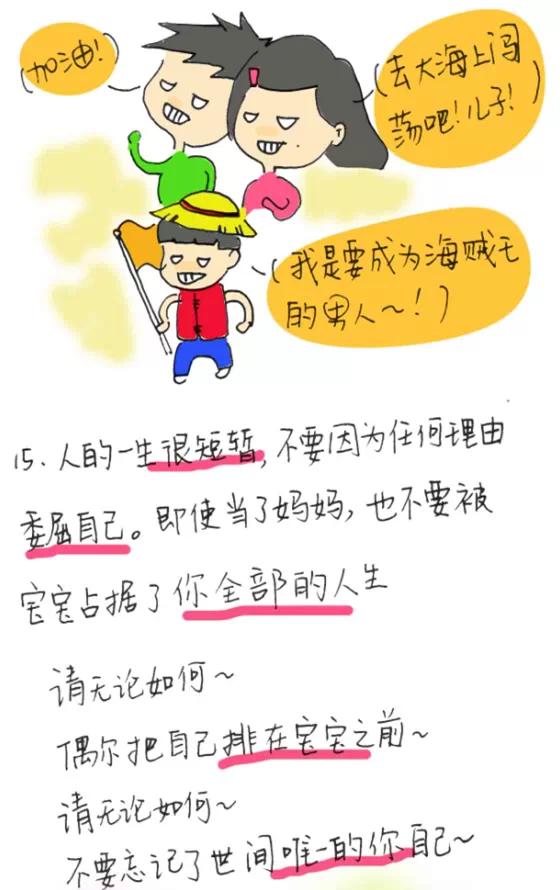 加油!
去大海上闯
荡吧!儿子!
我是要成为海贼王
的男人~!
15. 人的一生很短暂,不要因为任何理由
委屈自己。即使当了妈妈,也不要被
宝宝占据了你全部的人生
请无论如何~
偶尔把自己排在宝宝之前~
请无论如何~
不要忘记了世间唯一的你自己~